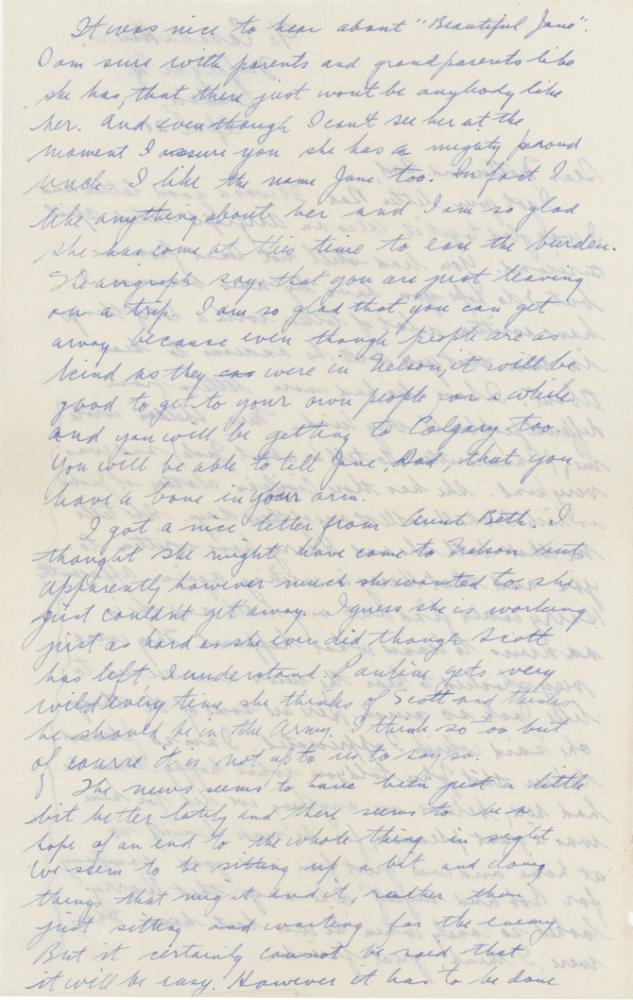 It was nice to hear about "Beautiful Jane".
I am sure with parents and grandparents like
she has, that there just wont be anybody like
her. And even though I cant see her at the
moment I assure you she has a mighty proud
uncle. I like the name Jane, too. In fact I
like anything about her and I am so glad
she has come at this time to ease the burden.
say that you are just leaving
on a trip. I am so glad that you can get
away because even though people are as
kind as they were in Nelson, it will be
good to get to your own people for a while
and you will be getting to Calgary too.
You will be able to tell Jane, Dad that you
have a bone in your arm.
I got a nice letter from Aunt Beth. I
thought she might have come to Nelson but
apparently however much she wanted to, she
just couldnt get away. I guess she is working
just as hard as she ever did though Scott
has left I understand. Pauline gets very
wild every time she thinks of Scott and thinks
he should be in the Army. I think so too but
of course it is not up to us to say so.
The news seems to have been just a little
bit better lately and there seems to be a
hope of an end to the whole thing in sight.
We seem to be sitting up a bit and doing
things that might end it, rather than
just sitting and waiting for the enemy.
But it certainly cannot be said that
it will be easy. However it has to be done